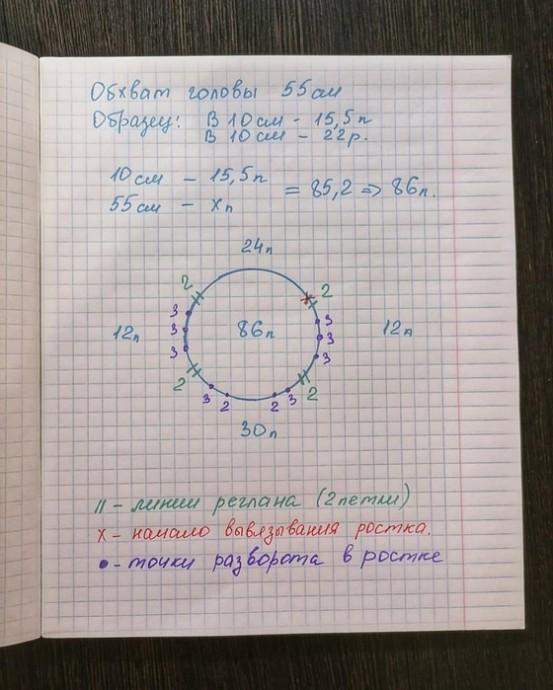 Обхват головы 55см
Образец: В 10см - 15,5п
В 10см - 22р.
10см - 15,5п
55см - хп
= 85,2 => 86п.
24п
2
2
3
3
3
3
3
3
12п
86п
12п
2
2
3
2
2
3
30п
|| - линии реглана (2 петли)
х - начало вывязывания ростка.
• - точки разворота в ростке